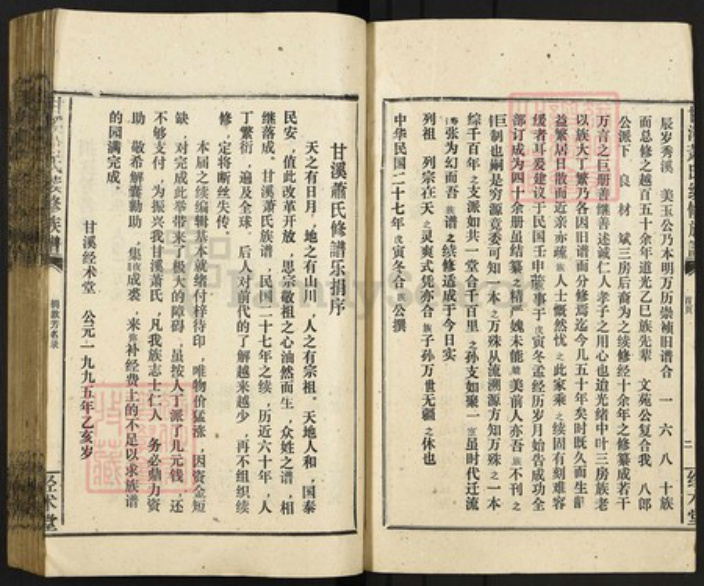 辰岁秀溪 美玉公乃本明万历崇祯旧谱合 一 六 八 十族
而总修之越百五十余年道光乙巳族先辈 文苑公复合我 八郎
公派下 良 材 斌三房后裔为之续修经十余年之修纂成若干
万言之巨册善继善述诚仁人孝子之用心也迨光绪中叶三房族老
以族大丁繁乃各因旧谱而分修焉迄今几五十年矣时既久而生齿
益繁居日散而近亲亦疏族人士慨然忧之此家乘之续固有刻难容
缓者耳爰建议于民国壬申蒇事于戊寅冬孟经历岁月始告成功全
部订成为四十余册虽结纂之精严媿未能赡美前人亦吾族不刊之
巨制也嗣是穷源竟委可知一本之万殊从流溯源方知万殊之一本
综千百年之支派如共一堂合千百里之孙支如聚一室虽时代迁流
诪张为幻而吾族谱之续修适成于今日实
列祖 列宗在天之灵爽式凭亦合族子孙万世无疆之休也
中华民国二十七年戊寅冬合族公撰
甘溪蕭氏修譜乐捐序
天之有日月,地之有山川,人之有宗祖。天地人和,国泰
民安,值此改革开放,思宗敬祖之心油然而生,众姓之谱,相
继落成。甘溪萧氏族谱,民国二十七年之续,历近六十年,人
丁繁衍,遍及全球。后人对前代的了解越来越少,再不组织续
修,定将断丝失传。
本届之续编辑基本就绪付梓待印,唯物价猛涨,因资金短
缺,对完成此举带来了极大的障碍,虽按人丁派了几元钱,还
不够支付,为振兴我甘溪萧氏,凡我族志士仁人,务必鼎力资
助,敬希解囊勷助,集腋成裘,来弥补经费上的不足以求族谱
的园满完成。
甘溪经术堂 公元一九九五年乙亥岁
捐款芳名录
经术堂
二
经术堂